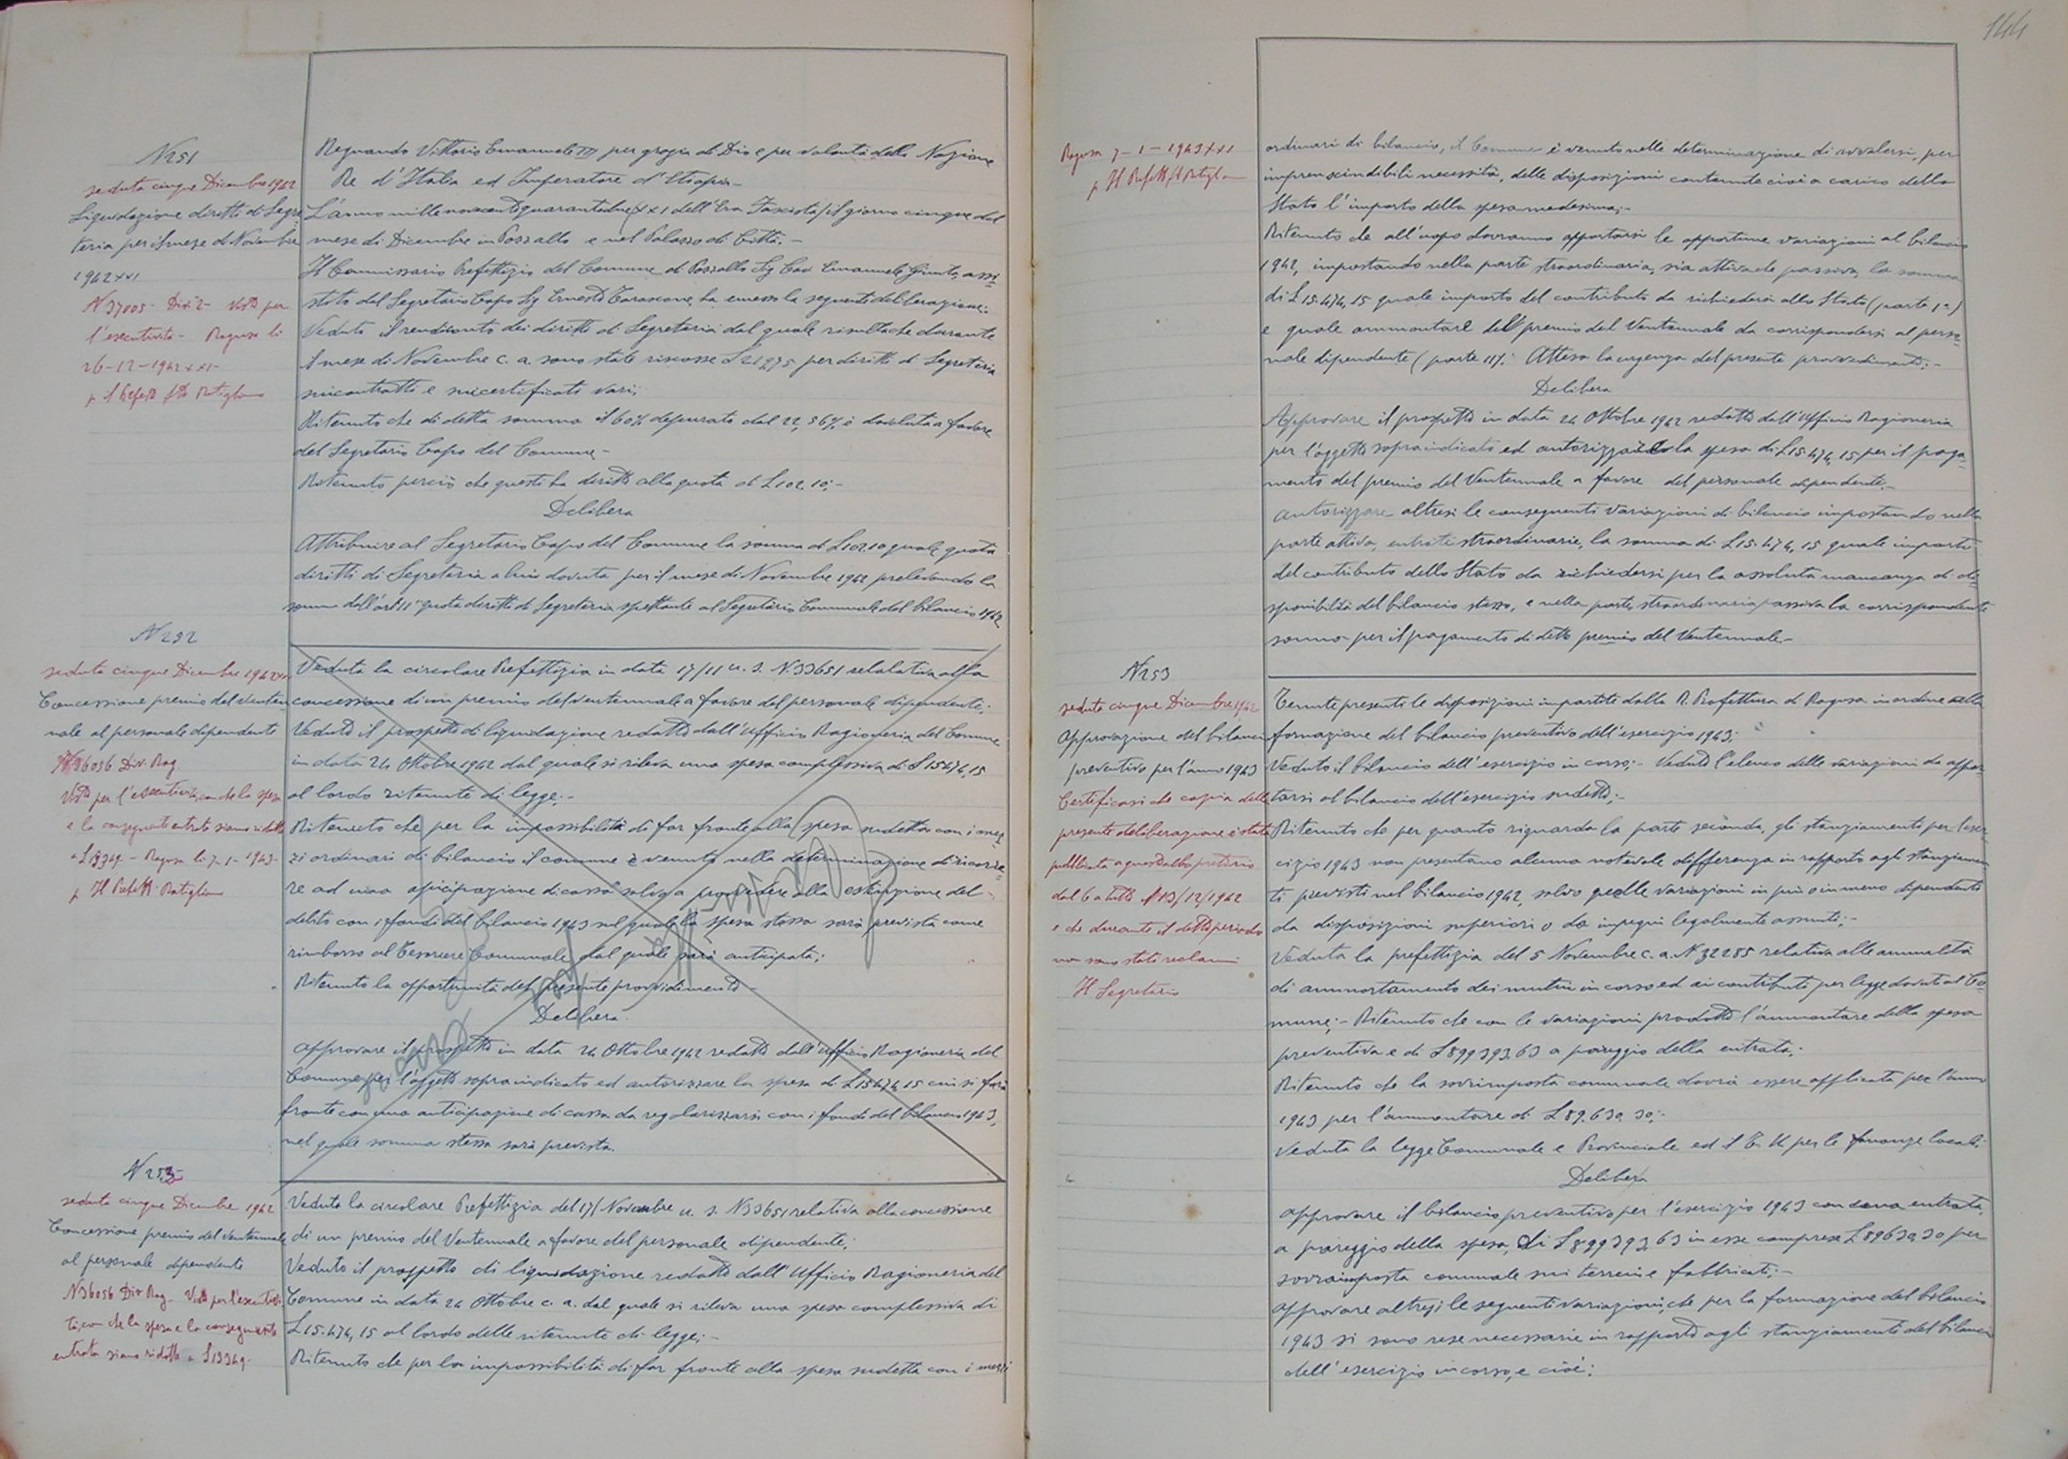 N 251
seduta cinque Dicembre 1942
Liquidazione diritti di Segre
teria per il mese di Novembre
1942 XXI
N 37005 - Div. 2 - Visto per
l'esecutività - Ragusa li
26-12-1942 XXI -
p. Il Prefetto
Regnando Vittorio Emanuele III per grazia di Dio e per volontà della Nazione
Re d'Italia ed Imperatore d'Etiopia -
L'anno millenovecentoquarantadue (XXI dell'Era Fascista) il giorno cinque del
mese di Dicembre in Pozzallo e nel Palazzo di Città. -
Il Commissario Prefettizio del Comune di Pozzallo Sig. Cav. Emanuele Giunta, assi
stito dal Segretario Capo Sig. Ernesto Tarascone, ha emesso la seguente deliberazione:
Veduto il rendiconto dei diritti di Segreteria dal quale risulta che durante
il mese di Novembre c. a. sono state riscosse per diritti di Segreteria
sui contratti e sui certificati vari;
Ritenuto che di detta somma il 60% depurato dal 22,56% è devoluta a favore
del Segretario Capo del Comune -
Ritenuto perciò che questi ha diritto alla quota di £ 102,10; -
Delibera
Attribuire al Segretario Capo del Comune la somma di £ 102.10 quale quota
diritti di Segreteria a lui dovuta per il mese di Novembre 1942 prelevando la
somma dall'art. 11 quota diritti di Segreteria spettante al Segretario Comunale del bilancio 1942
N 252
seduta cinque Dicembre 1942 XXI
Concessione premio del Venten
nale al personale dipendente
N 36056 Div. Rag.
Visto per l'esecutività, con che la spesa
e la conseguente entrata siano ridotte
a £ 13349. - Ragusa li 7-1-1943-
p. Il Prefetto
Veduta la circolare Prefettizia in data 17/11 u. s. N. 33651 relativa alla
concessione di un premio del ventennale a favore del personale dipendente;
Veduto il prospetto di liquidazione redatto dall'ufficio Ragioneria del Comune
in data 24 Ottobre 1942 dal quale si rileva una spesa complessiva di £ 15474,15
al lordo ritenute di legge; -
Ritenuto che per la impossibilità di far fronte alla spesa sudetta con i mez
zi ordinari di bilancio il comune è venuto nella determinazione di ricorre
re ad una anticipazione di cassa salvo a provvedere alla estinzione del
debito con i fondi del bilancio 1943 sul quale la spesa stessa sarà prevista come
rimborso al Tesoriere Comunale dal quale sarà anticipata;
Ritenuto la opportunità del presente provvedimento -
Delibera.
Approvare il prospetto in data 24 Ottobre 1942 redatto dall'ufficio Ragioneria del
Comune per l'oggetto sopraindicato ed autorizzare la spesa di £ 15474,15 cui si farà
fronte con una anticipazione di cassa da regolarizzarsi con i fondi del bilancio 1943,
nel quale somma stessa sarà prevista.
N 252
seduta cinque Dicembre 1942
Concessione premio del Ventennale
al personale dipendente
N 36056 Div Rag - Visto per l'esecutivi
tà, con che la spesa e la conseguente
entrata siano ridotte a £ 13349.
Veduta la circolare Prefettizia del 17/ Novembre u. s. N 33651 relativa alla concessione
di un premio del Ventennale a favore del personale dipendente;
Veduto il prospetto di liquidazione redatto dall'Ufficio Ragioneria del
Comune in data 24 Ottobre c. a. dal quale si rileva una spesa complessiva di
£ 15.474,15 al lordo delle ritenute di legge; -
Ritenuto che per la impossibilità di far fronte alla spesa sudetta con i mezzi
144
Ragusa 7-1-1943 XXI
p. Il Prefetto
ordinari di bilancio, il Comune è venuto nelle determinazione di avvalersi, per
imprenscindibili necessità, delle disposizioni contenute cioè a carico dello
Stato l'importo della spesa medesima; -
Ritenuto che all'uopo dovranno apportarsi le opportune variazioni al bilancio
1942, impostando nella parte straordinaria, sia attiva che passiva, la somma
di £ 15.474,15 quale importo del contributo da richiedersi allo Stato (parte 1ª)
e quale ammontare del premio del Ventennale da corrispondersi al perso-
nale dipendente (parte II). Attesa la urgenza del presente provvedimento; -
Delibera
Approvare il prospetto in data 24 Ottobre 1942 redatto dall'Ufficio Ragioneria
per l'oggetto sopraindicato ed autorizzare la spesa di £ 15.474,15 per il paga-
mento del premio del Ventennale a favore del personale dipendente. -
Autorizzare altresì le conseguenti variazioni di bilancio impostando nella
parte attiva, entrate straordinarie, la somma di £ 15.474,15 quale importo
del contributo dello Stato da richiedersi per la assoluta mancanza di di-
sponibilità del bilancio stesso, e nella parte straordinaria passiva la corrispondente
somma per il pagamento di detto premio del Ventennale -
N 253
seduta cinque Dicembre 1942
Approvazione del bilancio
preventivo per l'anno 1943
Certificasi che copia della
presente deliberazione è stata
pubblicata a quest'albo pretorio
dal 6 a tutto il 13/12/1942
e che durante il detto periodo
non sono stati reclami
Il Segretario
Tenute presente le disposizioni impartite dalla R. Prefettura di Ragusa in ordine alla
formazione del bilancio preventivo dell'esercizio 1943;
Veduto il bilancio dell'esercizio in corso; - Veduto l'elenco delle variazioni da appor-
tarsi al bilancio dell'esercizio sudetto; -
Ritenuto che per quanto riguarda la parte seconda, gli stanziamenti per l'eser-
cizio 1943 non presentano alcuna notevole differenza in rapporto agli stanziamen
ti previsti nel bilancio 1942, salvo quelle variazioni in più o in meno dipendenti
da disposizioni superiori o da impegni legalmente assunti; -
Veduta la prefettizia del 5 Novembre c. a. N 32285 relativa alle annualità
di ammortamento dei mutui in corso ed ai contributi per legge dovuti al Co-
mune; - Ritenuto che con le variazioni prodotte l'ammontare della spesa
preventiva è di £ 899393,63 a pareggio della entrata;
Ritenuto che la sovrimposta comunale dovrà essere applicata per l'anno
1943 per l'ammontare di £ 89.639,30; -
Veduta la legge Comunale e Provinciale ed il T. U. per le finanze locali;
Delibera
Approvare il bilancio preventivo per l'esercizio 1943 con una entrata,
a pareggio della spesa, di £ 899393,63 in esse comprese £ 89639,30 per
sovraimposta comunale sui terreni e fabbricati; -
Approvare altresì le seguenti variazioni, che per la formazione del bilancio
1943 si sono rese necessarie in rapporto agli stanziamenti del bilancio
dell'esercizio in corso, e cioè: